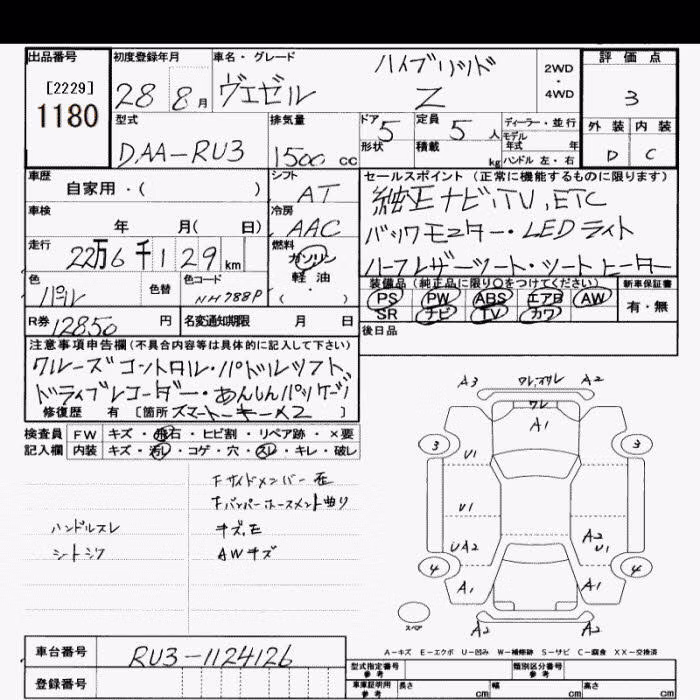 出品番号 初度登録年月 車名・グレード ハイブリッド 2WD・4WD 評価点
[2229] 28 8月 ヴェゼル Z 3
1180
外装 内装
型式 排気量 ドア 5 定員 5人 ディーラー・並行
形状 積載 kg モデル年式 年
DAA-RU3 1500cc ハンドル 左・右 D C
車歴 シフト セールスポイント(正常に機能するものに限ります)
自家用・( ) AT 純正ナビ,TV,ETC
車検 冷房
年 月( 日) AAC バックモニター・LEDライト
走行 燃料
22万6千129km ガソリン ハーフレザーシート・シートヒーター
色 色替 色コード 軽油 装備品(純正品に限り○をつけてください) 新車保証書
パール NH788P ・( ) PS PW ABS エアB AW 有・無
SR ナビ TV カワ
R券 12850円 名変通知期限 月 日 後日品
注意事項申告欄(不具合内容等は具体的に記入して下さい)
クルーズコントロル・パドルシフト
ドライブレコーダー・あんしんパッケージ
修復歴 有 [箇所 スマートーキーX2 ]
検査員 FW キズ・飛石・ヒビ割・リペア跡・×要
記入欄 内装 キズ・汚レ・コゲ・穴・スレ・キレ・破レ
A3 ワレ,ズレ A2
ワレ
A1
3 3
U1
U1
UA2 A2 U1
4 4
A1 A1
スペア
A2 A2
Fサイドメンバー
Fバンパーホースメント曲り
ハンドルスレ キズ,E
シートシワ AWキズ
A-キズ E-エクボ U-凹み W-補修跡 S-サビ C-腐食 XX-交換済
車台番号 RU3-1124126 型式指定番号 参考 類別区分番号 参考
登録番号 車庫証明用 参考 長さ cm 幅 cm 高さ cm